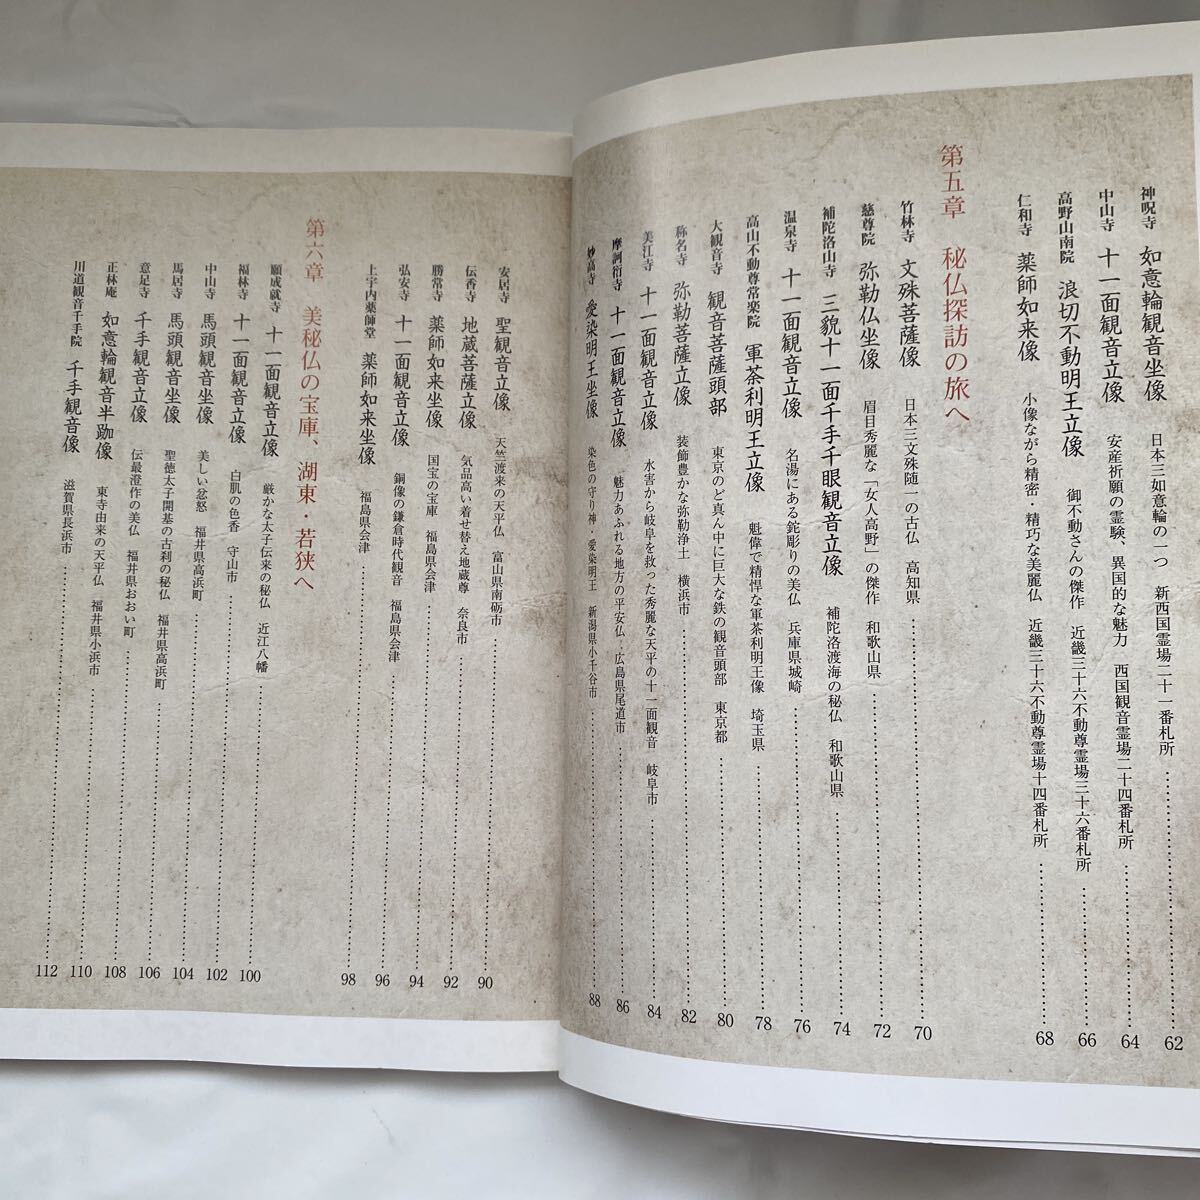 神呪寺 如意輪観音坐像 日本三如意輪の一つ 新西国霊場二十一番札所 62
中山寺 十一面観音立像 安産祈願の霊験、異国的な魅力 西国観音霊場二十四番札所 64
高野山南院 浪切不動明王立像 御不動さんの傑作 近畿三十六不動尊霊場三十六番札所 66
仁和寺 薬師如来像 小像ながら精密・精巧な美麗仏 近畿三十六不動尊霊場十四番札所 68
第五章 秘仏探訪の旅へ
竹林寺 文殊菩薩像 日本三文殊随一の古仏 高知県 70
慈尊院 弥勒仏坐像 眉目秀麗な「女人高野」の傑作 和歌山県 72
補陀洛山寺 三貌十一面千手千眼観音立像 補陀洛渡海の秘仏 和歌山県 74
温泉寺 十一面観音立像 名湯にある鉈彫りの美仏 兵庫県城崎 76
高山不動尊常楽院 軍荼利明王立像 魁偉で精悍な軍荼利明王像 埼玉県 78
大観音寺 観音菩薩頭部 東京のど真ん中に巨大な鉄の観音頭部 東京都 80
称名寺 弥勒菩薩立像 装飾豊かな弥勒浄土 横浜市 82
美江寺 十一面観音立像 水害から岐阜を救った秀麗な天平の十一面観音 岐阜市 84
摩訶衍寺 十一面観音立像 魅力あふれる地方の平安仏 広島県尾道市 86
妙高寺 愛染明王坐像 染色の守り神・愛染明王 新潟県小千谷市 88
安居寺 聖観音立像 天竺渡来の天平仏 富山県南砺市 90
伝香寺 地蔵菩薩立像 気品高い着せ替え地蔵尊 奈良市 92
勝常寺 薬師如来坐像 国宝の宝庫 福島県会津 94
弘安寺 十一面観音立像 銅像の鎌倉時代観音 福島県会津 96
上宇内薬師堂 薬師如来坐像 福島県会津 98
第六章 美秘仏の宝庫、湖東・若狭へ
願成就寺 十一面観音立像 厳かな太子伝来の秘仏 近江八幡 100
福林寺 十一面観音立像 白肌の色香 守山市 102
中山寺 馬頭観音坐像 美しい忿怒 福井県高浜町 104
馬居寺 馬頭観音坐像 聖徳太子開基の古刹の秘仏 福井県高浜町 106
意足寺 千手観音立像 伝最澄作の美仏 福井県おおい町 108
正林庵 如意輪観音半跏像 東寺由来の天平仏 福井県小浜市 110
川道観音千手院 千手観音像 滋賀県長浜市 112